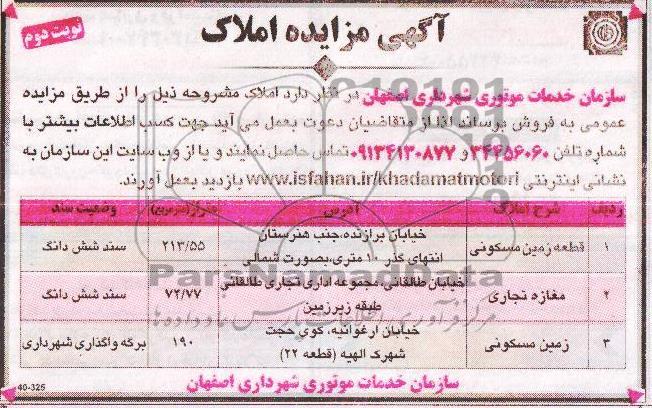 آگهی مزایده املاک
نوبت دوم
سازمان خدمات موتوری شهرداری اصفهان در نظر دارد املاک مشروحه ذیل را از طریق مزایده
عمومی به فروش برساند لذا از متقاضیان دعوت بعمل می آید جهت کسب اطلاعات بیشتر با
شماره تلفن ۳۴۴۵۶۰۶۰ و ۰۹۱۳۴۱۳۰۸۷۷ تماس حاصل نمایند و یا از وب سایت این سازمان به
نشانی اینترنتی www.isfahan.ir/khadamatmotori بازدید بعمل آورند.
ردیف شرح املاک آدرس متراژ(مترمربع) وضعیت سند
۱ قطعه زمین مسکونی خیابان برازنده،جنب هنرستان ۲۱۳/۵۵ سند شش دانگ
انتهای گذر ۱۰ متری،بصورت شمالی
۲ مغازه تجاری خیابان طالقانی، مجموعه اداری تجاری طالقانی ۷۲/۷۷ سند شش دانگ
طبقه زیرزمین
۳ زمین مسکونی خیابان ارغوانیه، کوی حجت ۱۹۰ برگه واگذاری شهرداری
شهرک الهیه (قطعه ۲۲)
سازمان خدمات موتوری شهرداری اصفهان
40-325
ParsNamadData